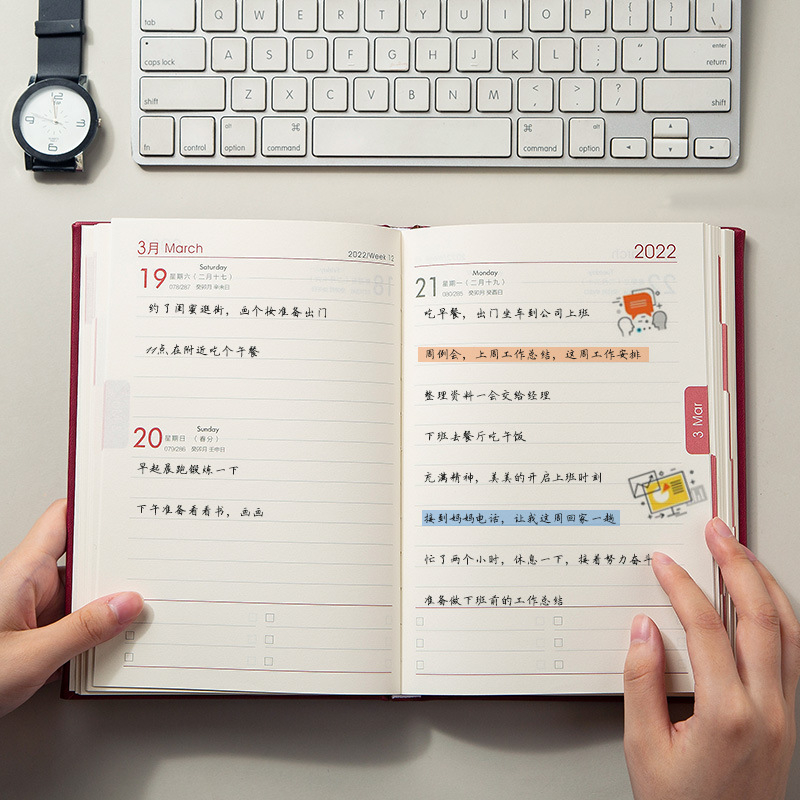 tab Q W E R T Y U I O P { [ } ] | \
caps lock A S D F G H J K L : ; " ' enter return
shift Z X C V B N M < , > . ? / shift
fn control alt option ⌘ command ⌘ command alt option
3月 March
2022/Week 12
19 星期六（二月十七）
Saturday
078/287 癸卯月 辛未日
约了闺蜜逛街，画个妆准备出门
11点在附近吃个午餐
20 星期日 （春分）
Sunday
079/286 癸卯月 壬申日
早起晨跑锻炼一下
下午准备看看书，画画
2022
21 星期一（二月十九）
Monday
080/285 癸卯月 癸酉日
吃早餐，出门坐车到公司上班
周例会，上周工作总结，这周工作安排
整理资料一会交给经理
下班去餐厅吃午饭
充满精神，美美的开启上班时刻
接到妈妈电话，让我这周回家一趟
忙了两个小时，休息一下，接着努力奋斗
准备做下班前的工作总结
3 Mar